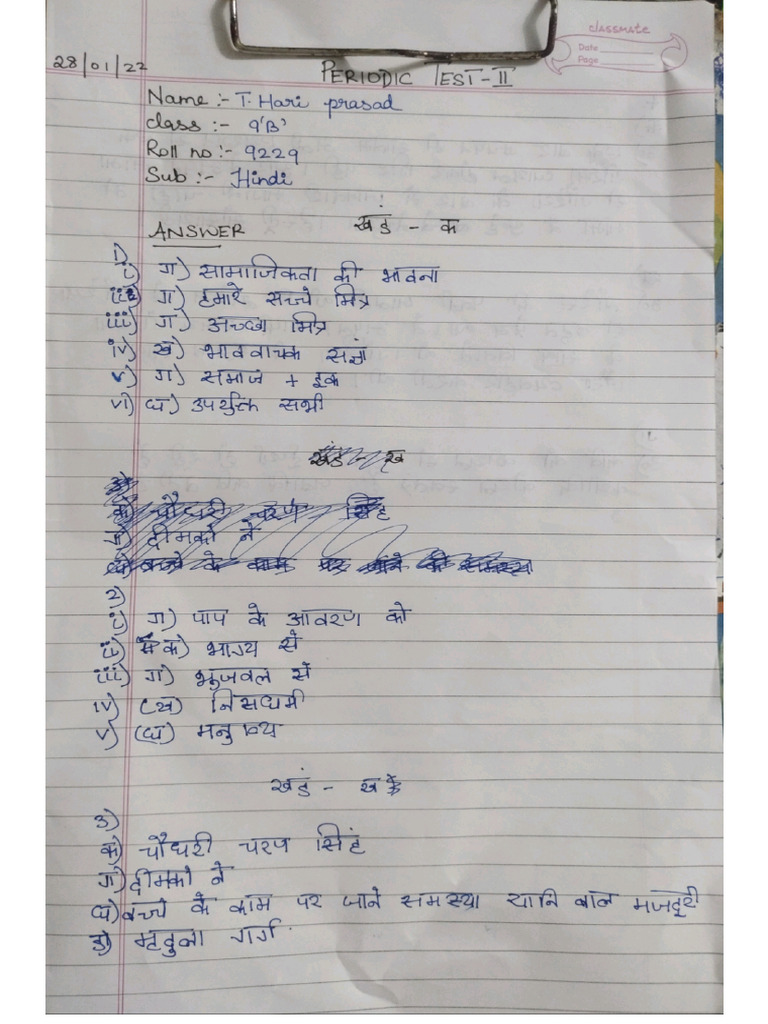 classmate
Date
Page
28/01/22
PERIODIC TEST-II
Name :- T. Hari prasad
class :- 9'B'
Roll no :- 9229
Sub :- Hindi
ANSWER खंड - क
1)
i) ग) सामाजिकता की भावना
ii) ग) हमारे सच्चे मित्र
iii) ग) अच्छा मित्र
iv) ख) भाववाचक संज्ञा
v) ग) समाज + इक
vi) घ) उपर्युक्त सभी
खंड - ख
क) चौधरी चरण सिंह
ग) दीमको ने
2)
i) ग) पाप के आवरण को
ii) क) भाग्य से
iii) ग) भुजबल से
iv) (ख)
v) (घ) मनुष्य
खंड - ख
3)
क) चौधरी चरण सिंह
ग) दीमको ने
घ) बच्चे के काम पर जाने समस्या यानि बाल मजदूरी
ङ) मृदुला गर्ग